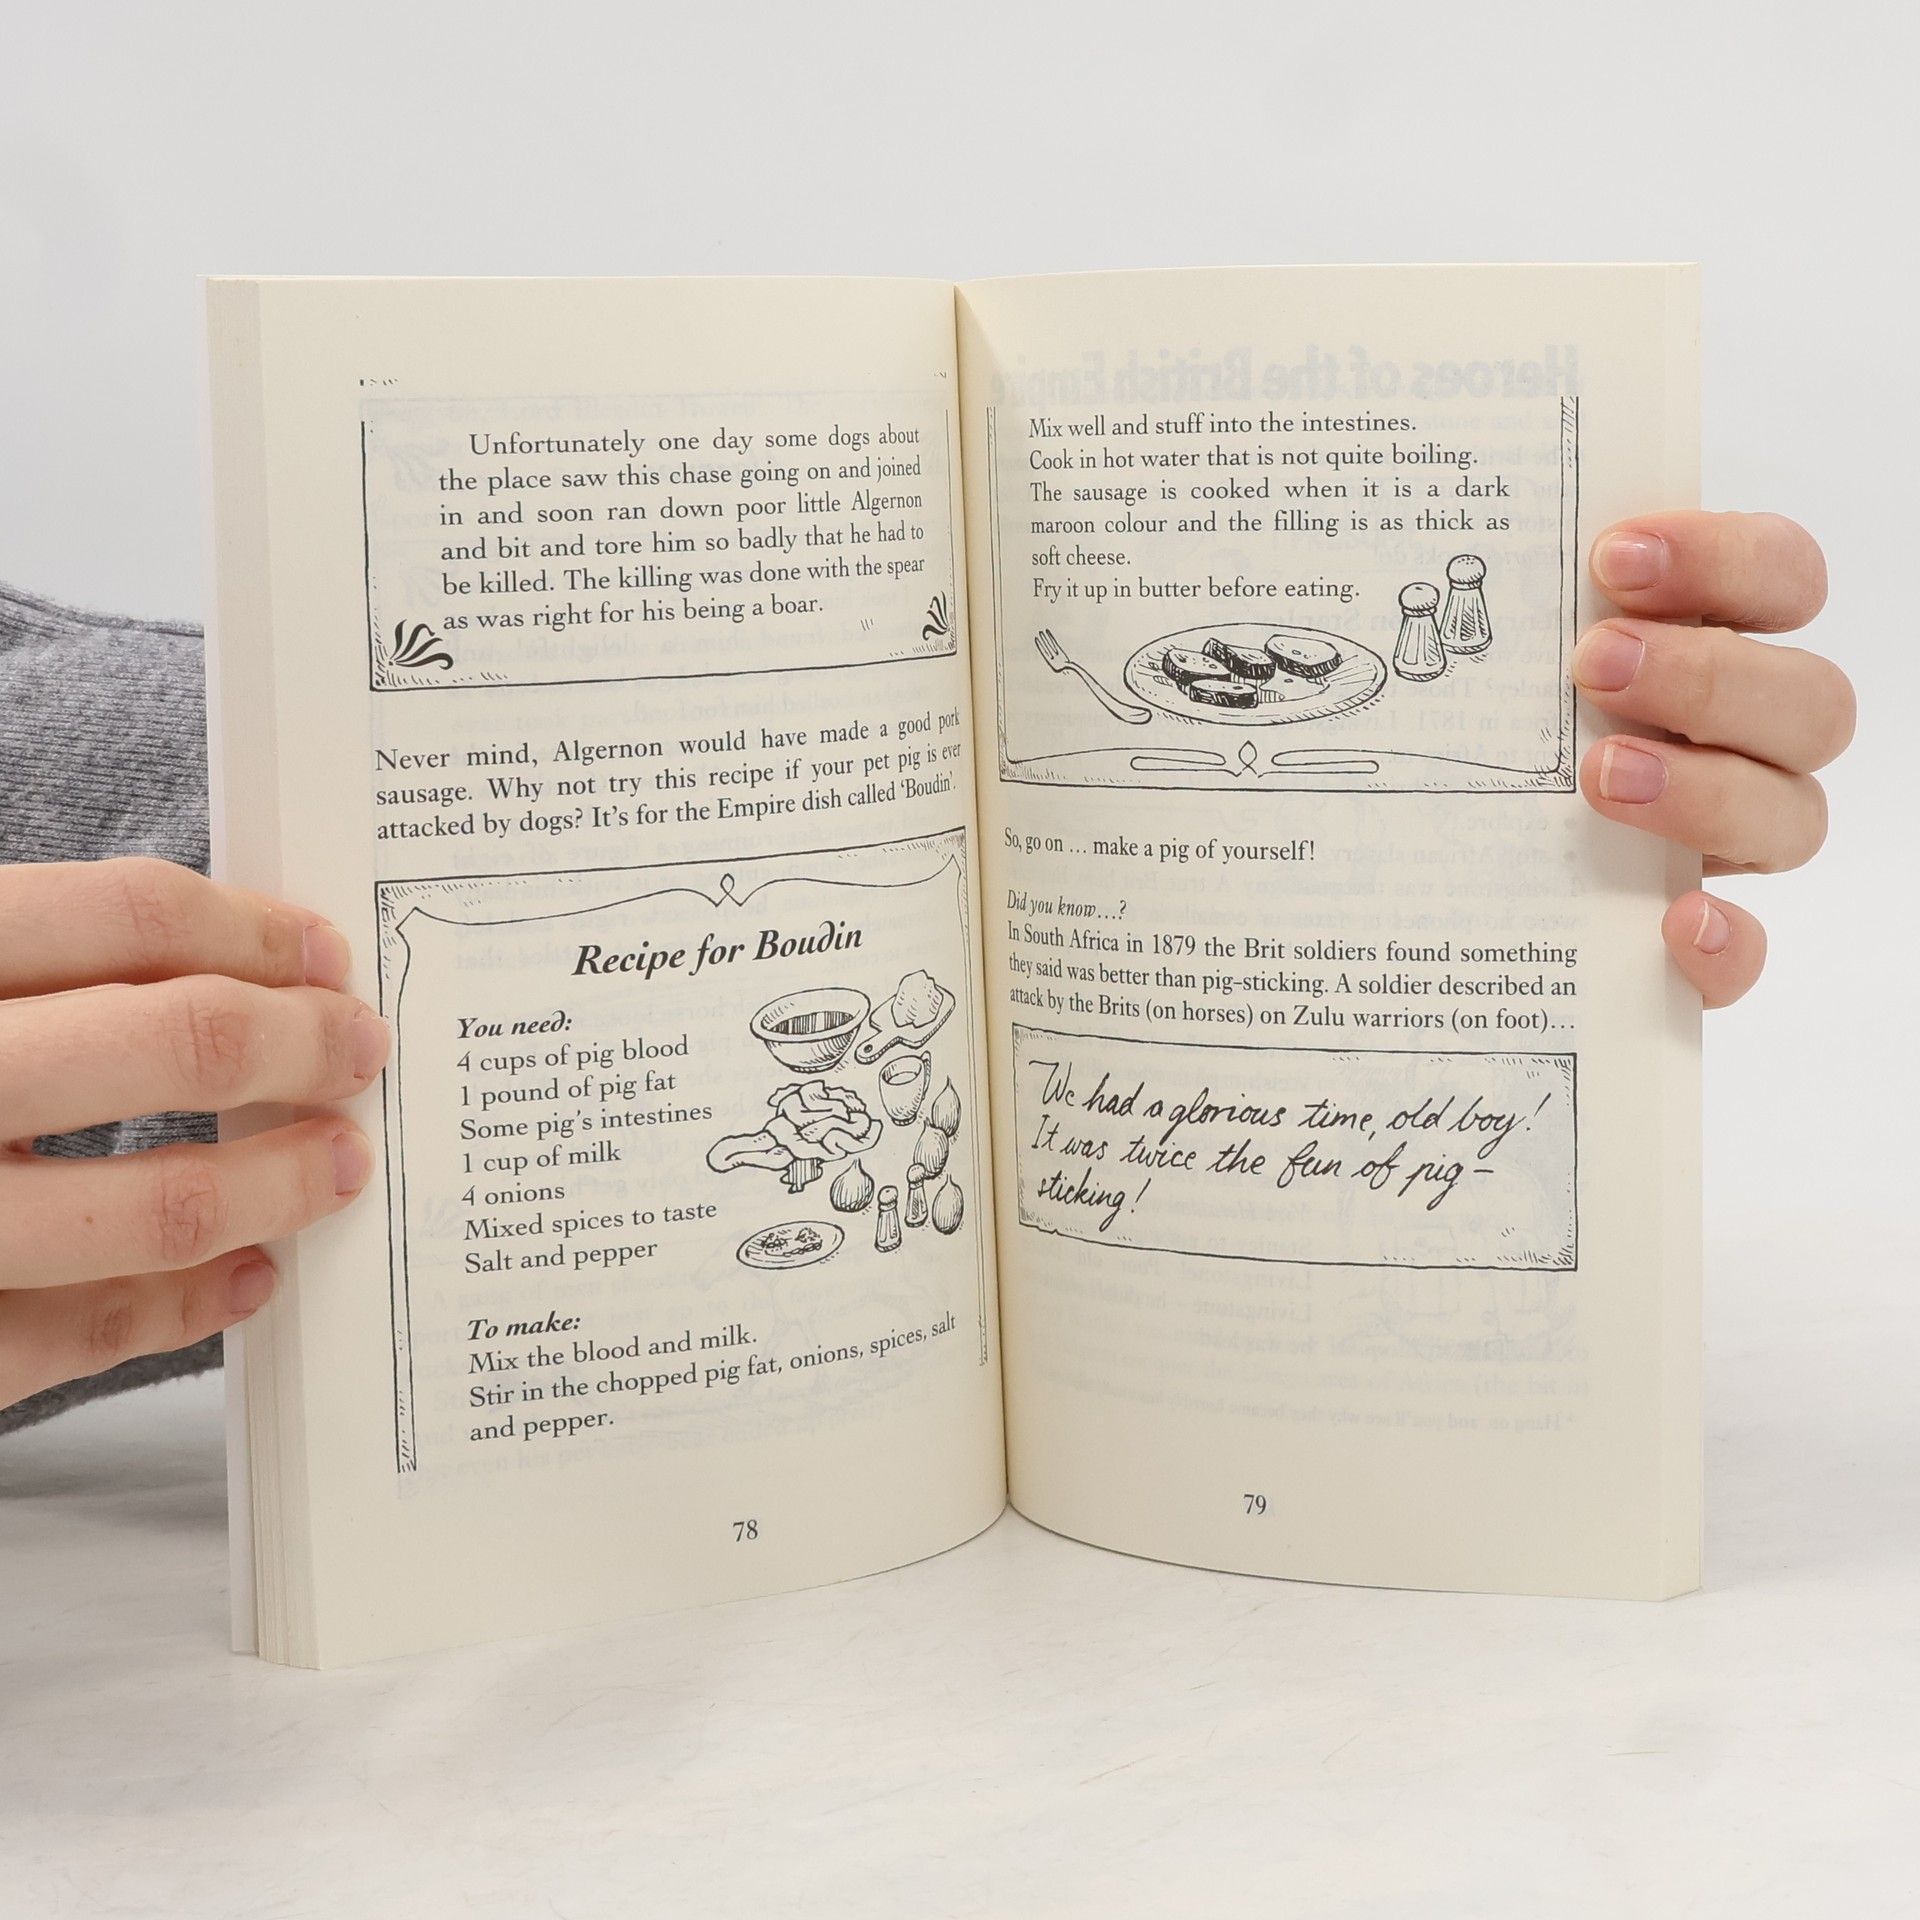 Unfortunately one day some dogs about
the place saw this chase going on and joined
in and soon ran down poor little Algernon
and bit and tore him so badly that he had to
be killed. The killing was done with the spear
as was right for his being a boar.
Never mind, Algernon would have made a good pork
sausage. Why not try this recipe if your pet pig is ever
attacked by dogs? It's for the Empire dish called 'Boudin'.
Recipe for Boudin
You need:
4 cups of pig blood
1 pound of pig fat
Some pig's intestines
1 cup of milk
4 onions
Mixed spices to taste
Salt and pepper
To make:
Mix the blood and milk.
Stir in the chopped pig fat, onions, spices, salt
and pepper.
78
Mix well and stuff into the intestines.
Cook in hot water that is not quite boiling.
The sausage is cooked when it is a dark
maroon colour and the filling is as thick as
soft cheese.
Fry it up in butter before eating.
So, go on … make a pig of yourself!
Did you know…?
In South Africa in 1879 the Brit soldiers found something
they said was better than pig-sticking. A soldier described an
attack by the Brits (on horses) on Zulu warriors (on foot)…
We had a glorious time, old boy!
It was twice the fun of pig-
sticking!
79
Heroes of the British Empire